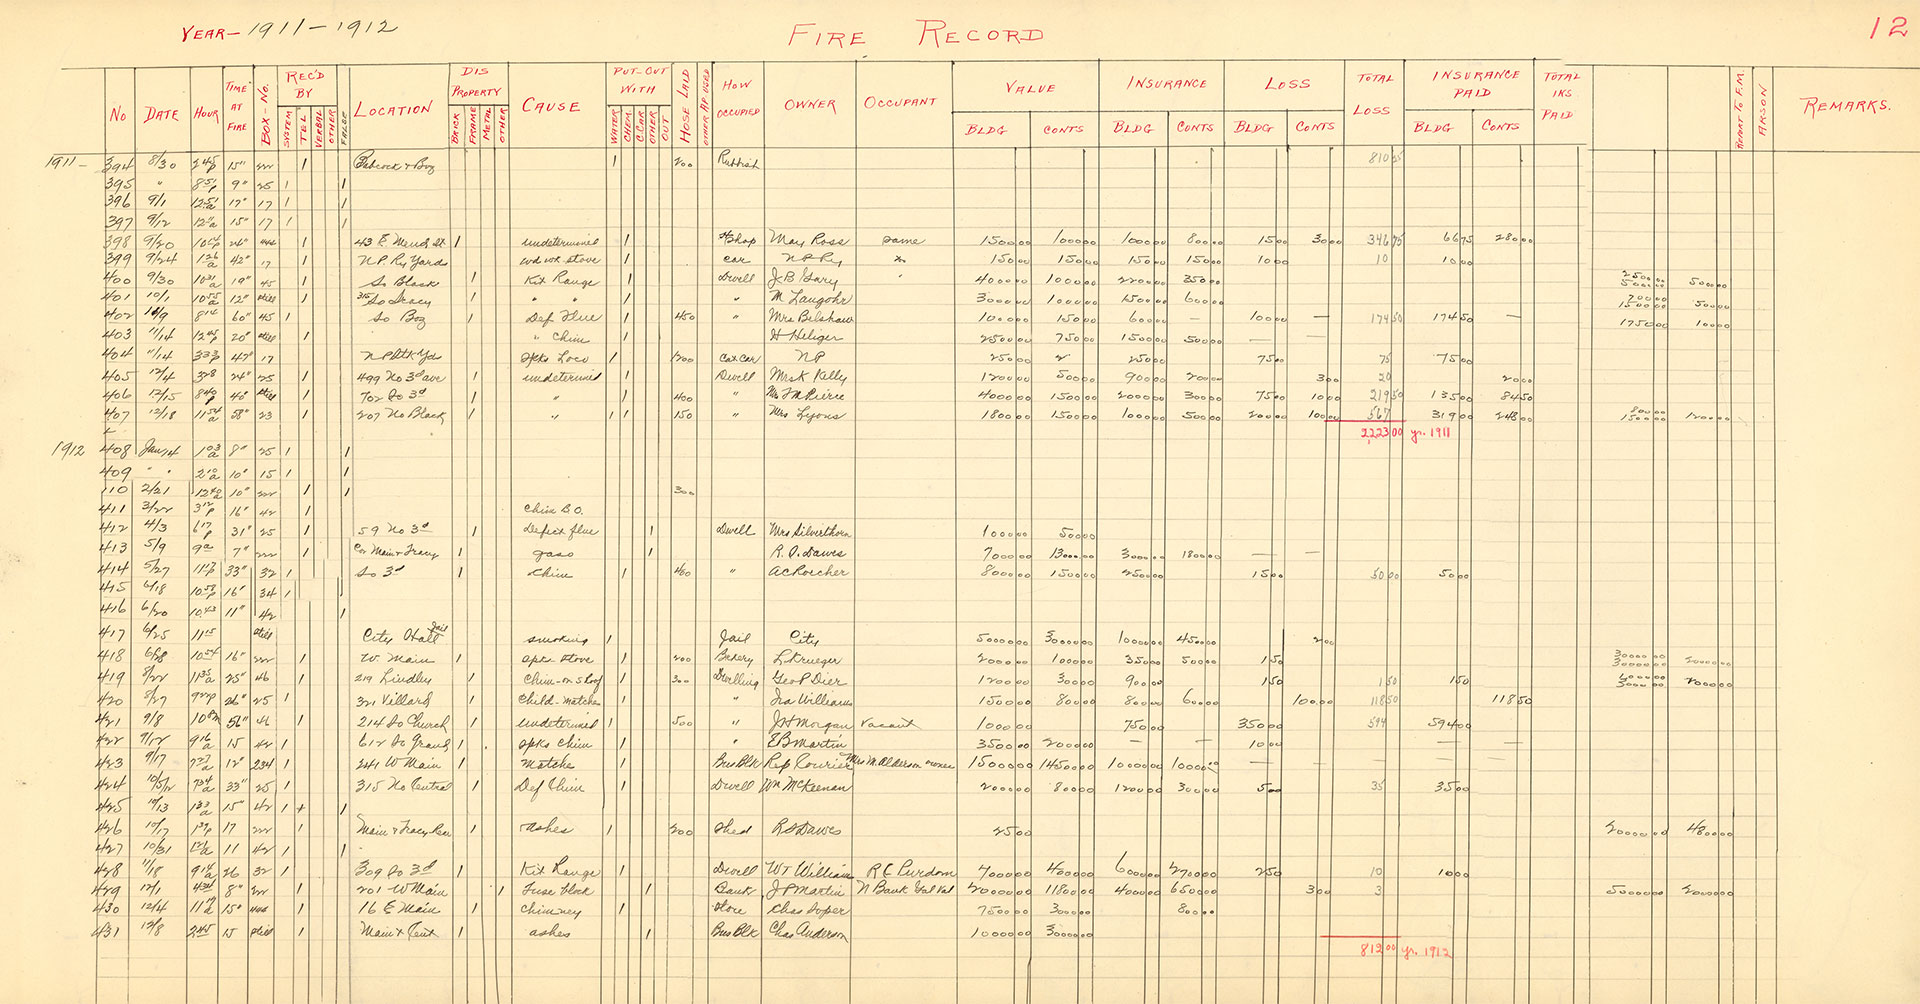 YEAR- 1911-1912 FIRE RECORD 12
No DATE HOUR TIME AT FIRE BOX-No. REC'D BY SYSTEM TEL VERBAL OTHER FALSE LOCATION DIS PROPERTY BRICK FRAME METAL OTHER CAUSE PUT-OUT WITH WATER CHEM. C.CAR OTHER OUT HOSE LAID OTHER AP. USED HOW OCCUPIED OWNER OCCUPANT VALUE BLDG CONTS INSURANCE BLDG CONTS LOSS BLDG CONTS TOTAL LOSS INSURANCE PAID BLDG CONTS TOTAL INS PAID REPORT TO F.M. ARSON REMARKS.
1911- 394 8/30 2 45 p 15" 222 1 Babcock & Boz 1 200 Rubbish
395 " 8 51 p 9" 25 1 1
396 9/1 12 51 a 17" 17 1 1
397 9/12 15" 17 1 1
398 9/20 24" 444 1 43 E. Mend St 1 undetermined 1 Shop May Ross same 1500 00 1000 00 1000 00 800 00 15 00 30 00 346 75 66 75 280 00
399 9/24 1 26 a 42" 17 1 N.P. Ry Yards wd wk stove 1 car N P Ry 150 00 150 00 150 00 150 00 10 00 10 10 00
400 9/30 10 31 a 19" 45 So Black 1 Kit Range 1 Dwell J B Gary " 4000 00 1000 00 2200 00 350 00
401 10/1 10 55 a 12" still 315 So Tracy 1 " " 1 " M Langohr 3000 00 1000 00 1500 00 600 00
402 8 14 60" 45 1 So Boz 1 Def Flue 1 450 " Mrs Belshaw 1000 00 150 00 600 00 — 100 00 — 174 50 174 50 —
403 11/14 12 45 p 20" still 1 " Chim 1 H Heliger 2500 00 750 00 1500 00 500 00 — —
404 11/14 3 33 p 47" 17 Spks Loco 1 1200 Cox Car NP 250 00 250 00 75 00 75 75 00
405 12/4 3 28 24" 25 1 499 No 3d ave 1 undetermined 1 Dwell Mrs K Kelly 1200 00 500 00 900 00 200 00 20 20 00
406 12/15 8 40 p 40" still 702 So 3d 1 " 1 400 " Mrs F M Pierce 4000 00 1500 00 2000 00 300 00 75 00 10 00 219 50 135 00 84 50
407 12/18 11 54 a 58" 23 1 207 No Black 1 " 1 150 " Mrs Lyons 1800 00 1500 00 1000 00 500 00 200 00 100 00 567 319 00 248 00
2223 00 yr. 1911
1912 408 Jan 14 1 03 a 8" 25 1 1
409 " " 2 10 a 10" 15 1 1
110 2/21 12 40 a 10" 222 1 1 300
411 3/22 3 12 p 16" 42 1 Chim B.O.
412 4/3 6 17 p 31" 25 1 59 No 3d 1 Defect flue 1 Dwell Mrs Silverthorn 1000 00 500 00
413 5/9 7" 222 1 Cor Main & Tracy 1 gaso 1 R. O. Dawes 7000 00 13000 00 3000 00 1800 00 — —
414 5/27 33" 32 1 So 3d 1 Chim 1 400 " A C Roecher 8000 00 1500 00 2500 00 15 00 50 00 50 00
415 6/18 10 58 p 16" 34 1
416 6/20 10 43 11" 42 1
417 6/25 11 15 still City Hall Jail smoking 1 Jail City 5000 00 3000 00 10000 00 450 00 2 00
418 6/28 10 54 16" 222 1 W. Main 1 spks stove 1 200 Bakery L Krueger 2000 00 1000 00 350 00 500 00 1 50
419 8/22 11 35 a 25" 46 1 219 Lindley 1 Chim-on 1 300 Dwelling Geo P Dier 1200 00 300 00 900 00 1 50 1 50 1 50
420 8/27 9 22 p 26" 25 1 321 Villard 1 Child-matches 1 " Ira Williams 1500 00 800 00 800 00 600 00 100 00 118 50 118 50
421 9/8 56" 46 1 214 So Church 1 undetermined 1 500 " J H Morgan Vacant 1000 00 750 00 350 00 594 594 00
422 9/12 9 16 a 15 42 1 612 So Grand 1 spks chim 1 " E B Martin 3500 00 2000 00 — — 10 00 — —
423 9/17 7 37 a 12" 234 1 241 W Main 1 matches 1 Bus Blk Rep Courier Mrs M. Alderson owner 15000 00 14500 00 10000 00 10000 00 — — — — —
424 10/5/12 7 34 a 33" 25 1 315 No Central 1 Def Chim 1 Dwell Wm McKeenan 2000 00 800 00 1200 00 300 00 5 00 35 35 00
425 10/13 1 33 a 15" 42 1 + 1
426 10/17 1 39 p 17 222 1 Main & Tracy Rear 1 ashes 1 200 Shed R O Dawes 25 00
427 10/31 11 42 1 1
428 11/18 9 15 a 26 32 1 309 So 3d 1 Kit Range 1 Dwell W T Williams R E Purdom 7000 00 4000 00 6000 00 2700 00 2 50 10 10 00
429 12/1 4 34 8" 222 1 201 W Main 1 Fuse block 1 Bank J P Martin N Bank Gal Val 20000 00 11800 00 4000 00 6500 00 3 00 3
430 12/4 15" 444 1 16 E Main 1 chimney 1 Store Chas Soper 7500 00 3000 00 800 00
431 12/8 2 45 15 still 1 Main & Cent 1 ashes 1 Bus Blk Chas Anderson 10000 00 30000 00
812 00 yr. 1912